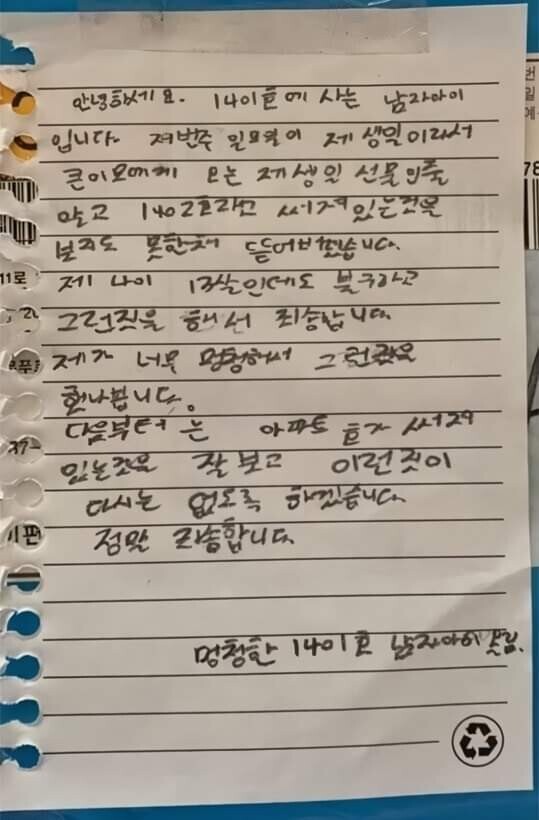 안녕하세요. 1401호에 사는 남자아이
입니다. 저번주 일요일이 제 생일이라서
큰이모에게 오는 제 생일 선물인줄
알고 1402호라고 써져있는것을
보지도 못한채 뜯어버렸습니다.
제 나이 13살인데도 불구하고
그런짓을 해서 죄송합니다.
제가 너무 멍청해서 그런짓을
했나봅니다.
다음부터는 아파트 호가 써져
있는것을 잘 보고 이런짓이
다시는 없도록 하겠습니다.
정말 죄송합니다.
멍청한 1401호 남자아이 올림.
11로
37-
이편
번
일
예
78